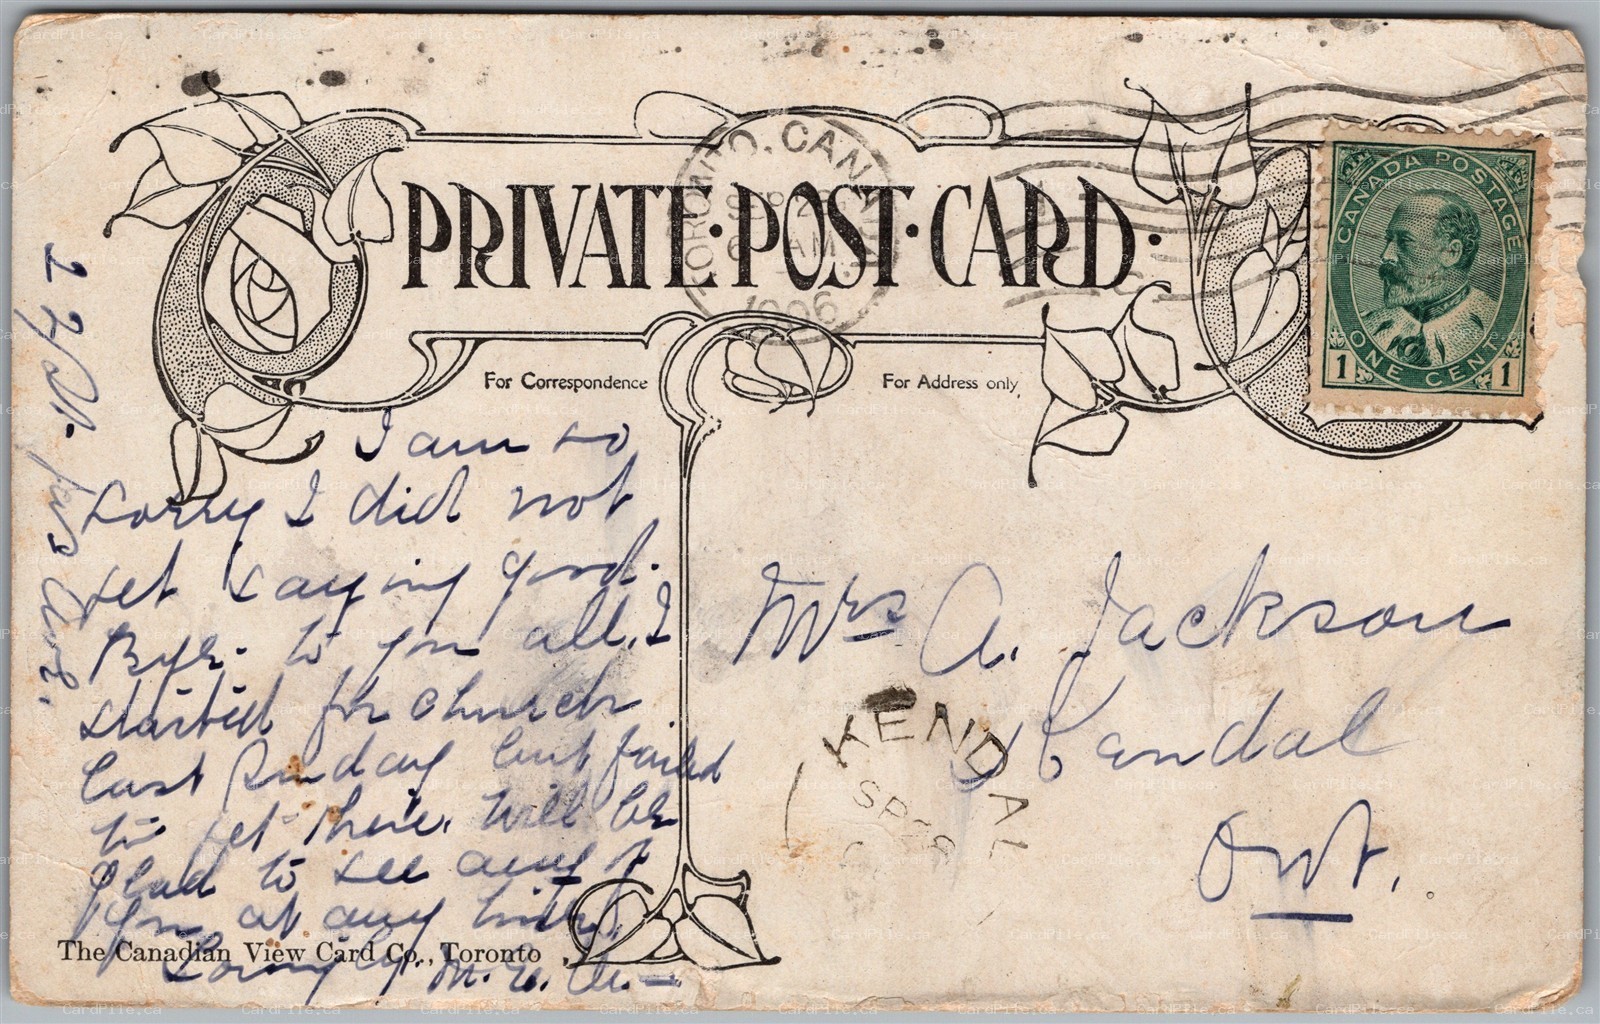 TORONTO. CANADA
SEP 2
AM
1906
PRIVATE·POST·CARD·
CANADA POSTAGE
ONE CENT
1 1
For Correspondence
For Address only.
I am so
sorry I did not
get saying good-
Bye. to you all. I
started for church
last Sunday but failed
to get there. Will be
glad to see any of
you at any time.
Mrs A. Jackson
Kendal
Ont.
KENDAL
SP 26
The Canadian View Card Co., Toronto
CardPile.ca